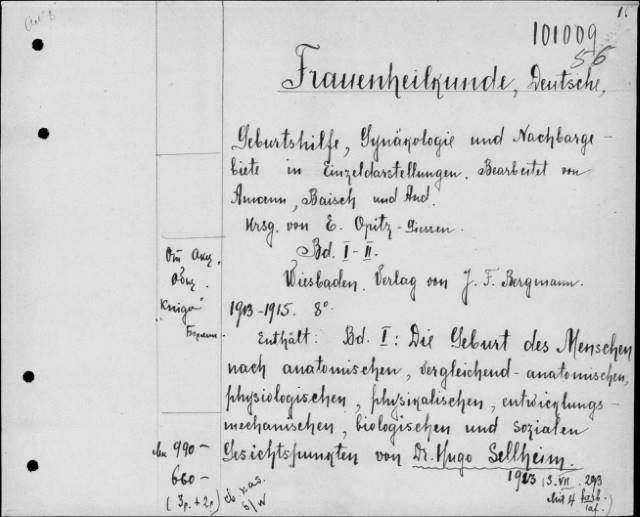 101009
56
Frauenheilkunde, Deutsche,
Geburtshilfe, Gynäkologie und Nachbarge-
biete in Einzeldarstellungen. Bearbeitet von
Amann, Baisch und And.
Hrsg. von E. Opitz-Giessen.
Bd. I-II.
Wiesbaden. Verlag von J. F. Bergmann.
1913-1915. 8°.
Enthält: Bd. I: Die Geburt des Menschen
nach anatomischen, vergleichend-anatomischen,
physiologischen, physikalischen, entwicklungs-
mechanischen, biologischen und sozialen
Gesichtspunkten von Dr. Hugo Sellheim.
1913 (S. VII. 293
Mit 4 farb.
Taf.)
От Акц.
Общ.
"Книга"
990-
660-
(3р.+2р)